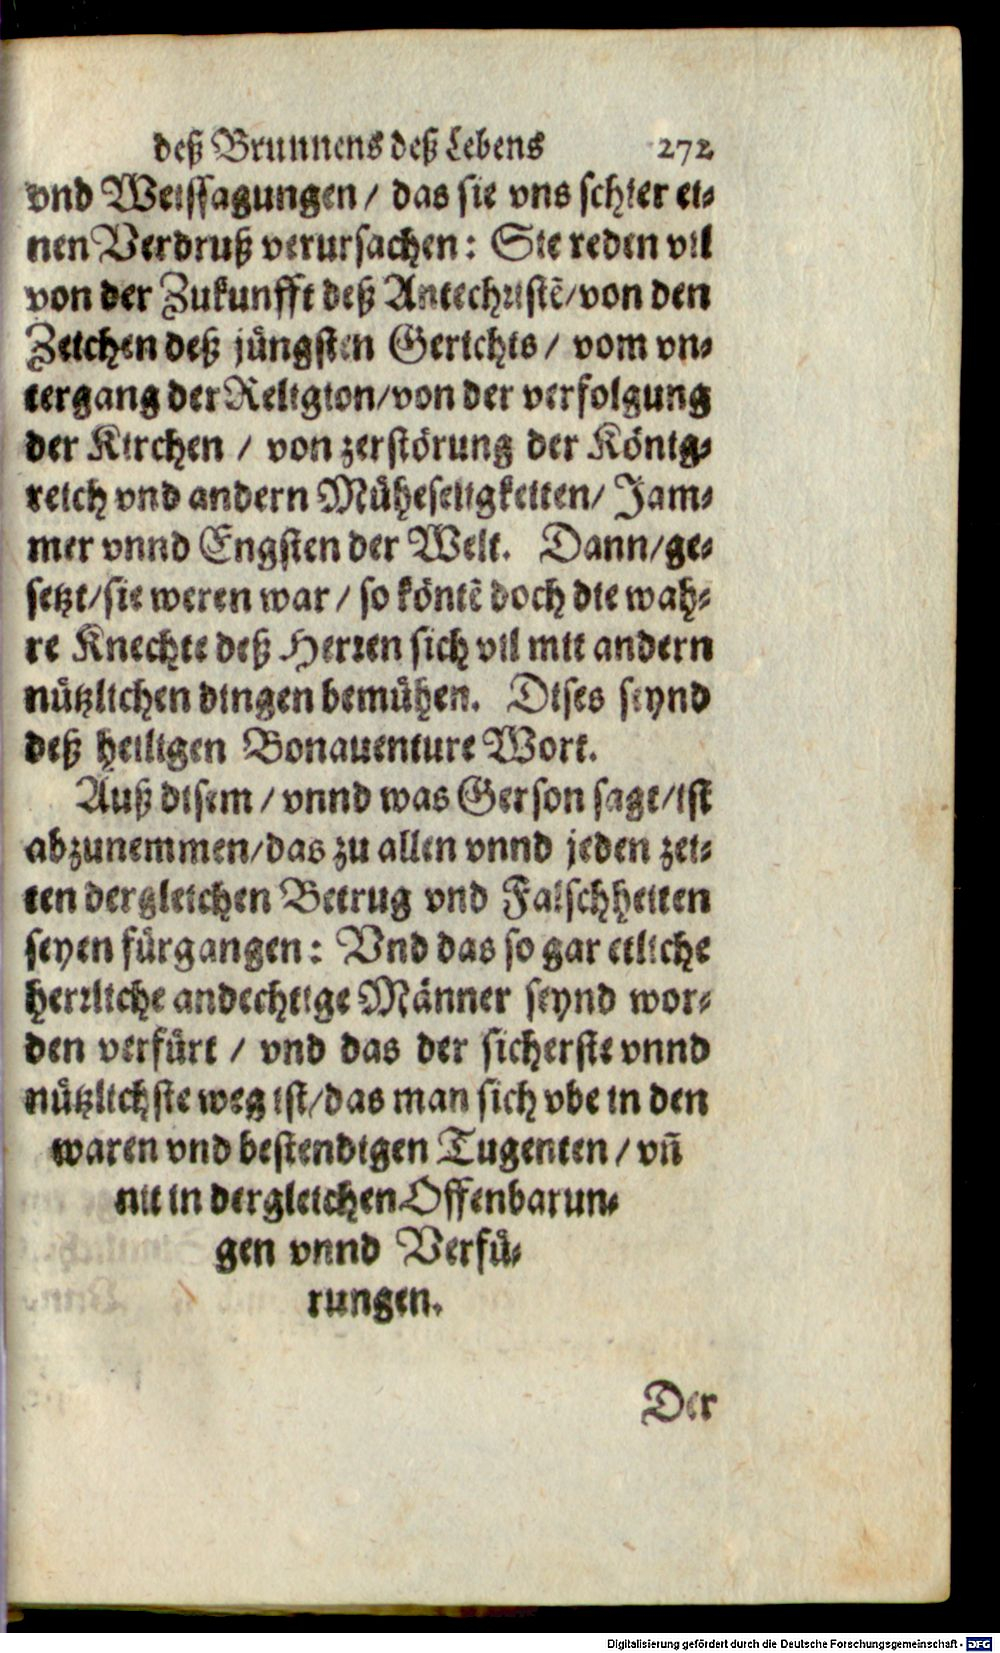 deß Brunnens deß Lebens 272
vnd Weissagungen / das sie vns schier ei⸗
nen Verdruß verursachen: Sie reden vil
von der Zukunfft deß Antechristē/von den
Zeichen deß jüngsten Gerichts / vom vn⸗
tergang der Religion/von der verfolgung
der Kirchen / von zerstörung der König⸗
reich vnd andern Müheseligkeiten/ Jam⸗
mer vnnd Engsten der Welt. Dann/ge⸗
setzt/sie weren war / so köntē doch die wah⸗
re Knechte deß Herren sich vil mit andern
nützlichen dingen bemühen. Dises seynd
deß heiligen Bonauenture Wort.
Auß disem / vnnd was Gerson sagt/ist
abzunemmen/das zu allen vnnd jeden zei⸗
ten dergleichen Betrug vnd Falschheiten
seyen fürgangen: Vnd das so gar etliche
herrliche andechtige Männer seynd wor⸗
den verfürt / vnd das der sicherste vnnd
nützlichste weg ist/das man sich vbe in den
waren vnd bestendigen Tugenten / vñ
nit in dergleichen Offenbarun⸗
gen vnnd Verfü⸗
rungen.
Der
Digitalisierung gefördert durch die Deutsche Forschungsgemeinschaft - DFG